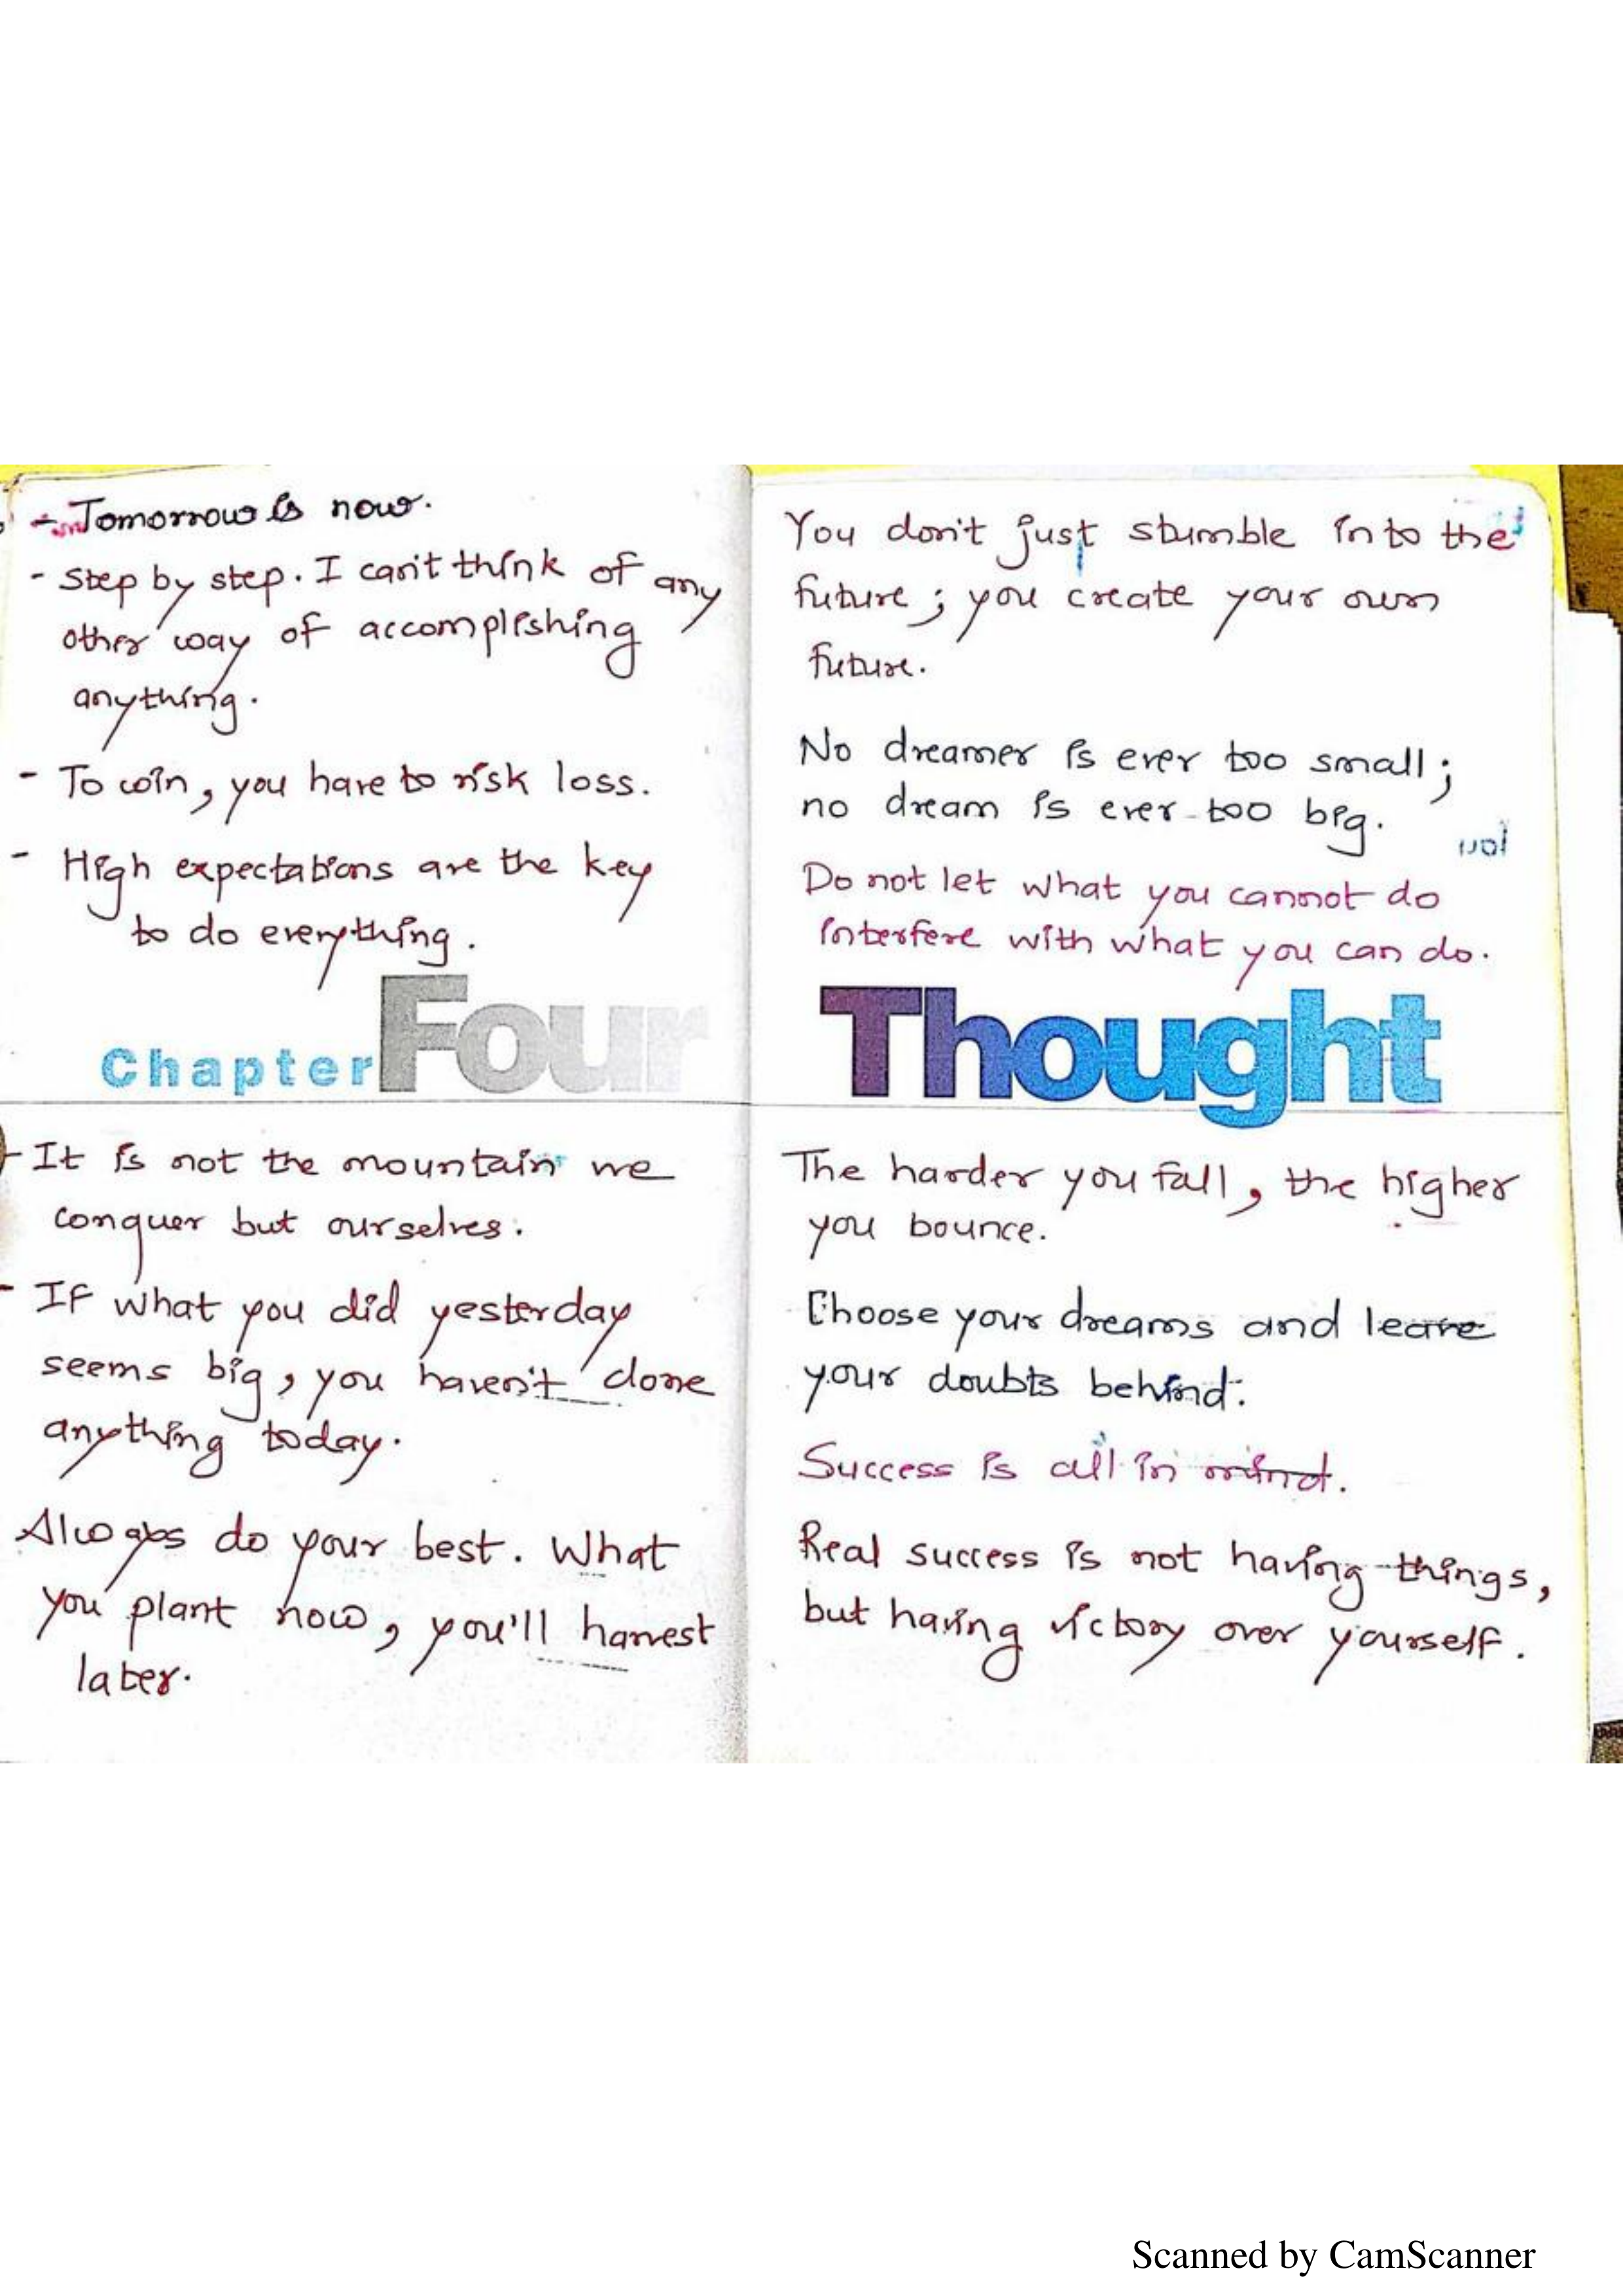 - Tomorrow is now.
- Step by step. I can't think of any
other way of accomplishing
anything.
- To win, you have to risk loss.
- High expectations are the key
to do everything.
Chapter Four
- It is not the mountain we
conquer but ourselves.
- If what you did yesterday
seems big, you haven't done
anything today.
Always do your best. What
you plant now, you'll harvest
later.
You don't just stumble into the
future; you create your own
future.
No dreamer is ever too small;
no dream is ever too big.
Do not let what you cannot do
interfere with what you can do.
Thought
The harder you fall, the higher
you bounce.
Choose your dreams and leave
your doubts behind.
Success is all in mind.
Real success is not having things,
but having victory over yourself.
Scanned by CamScanner